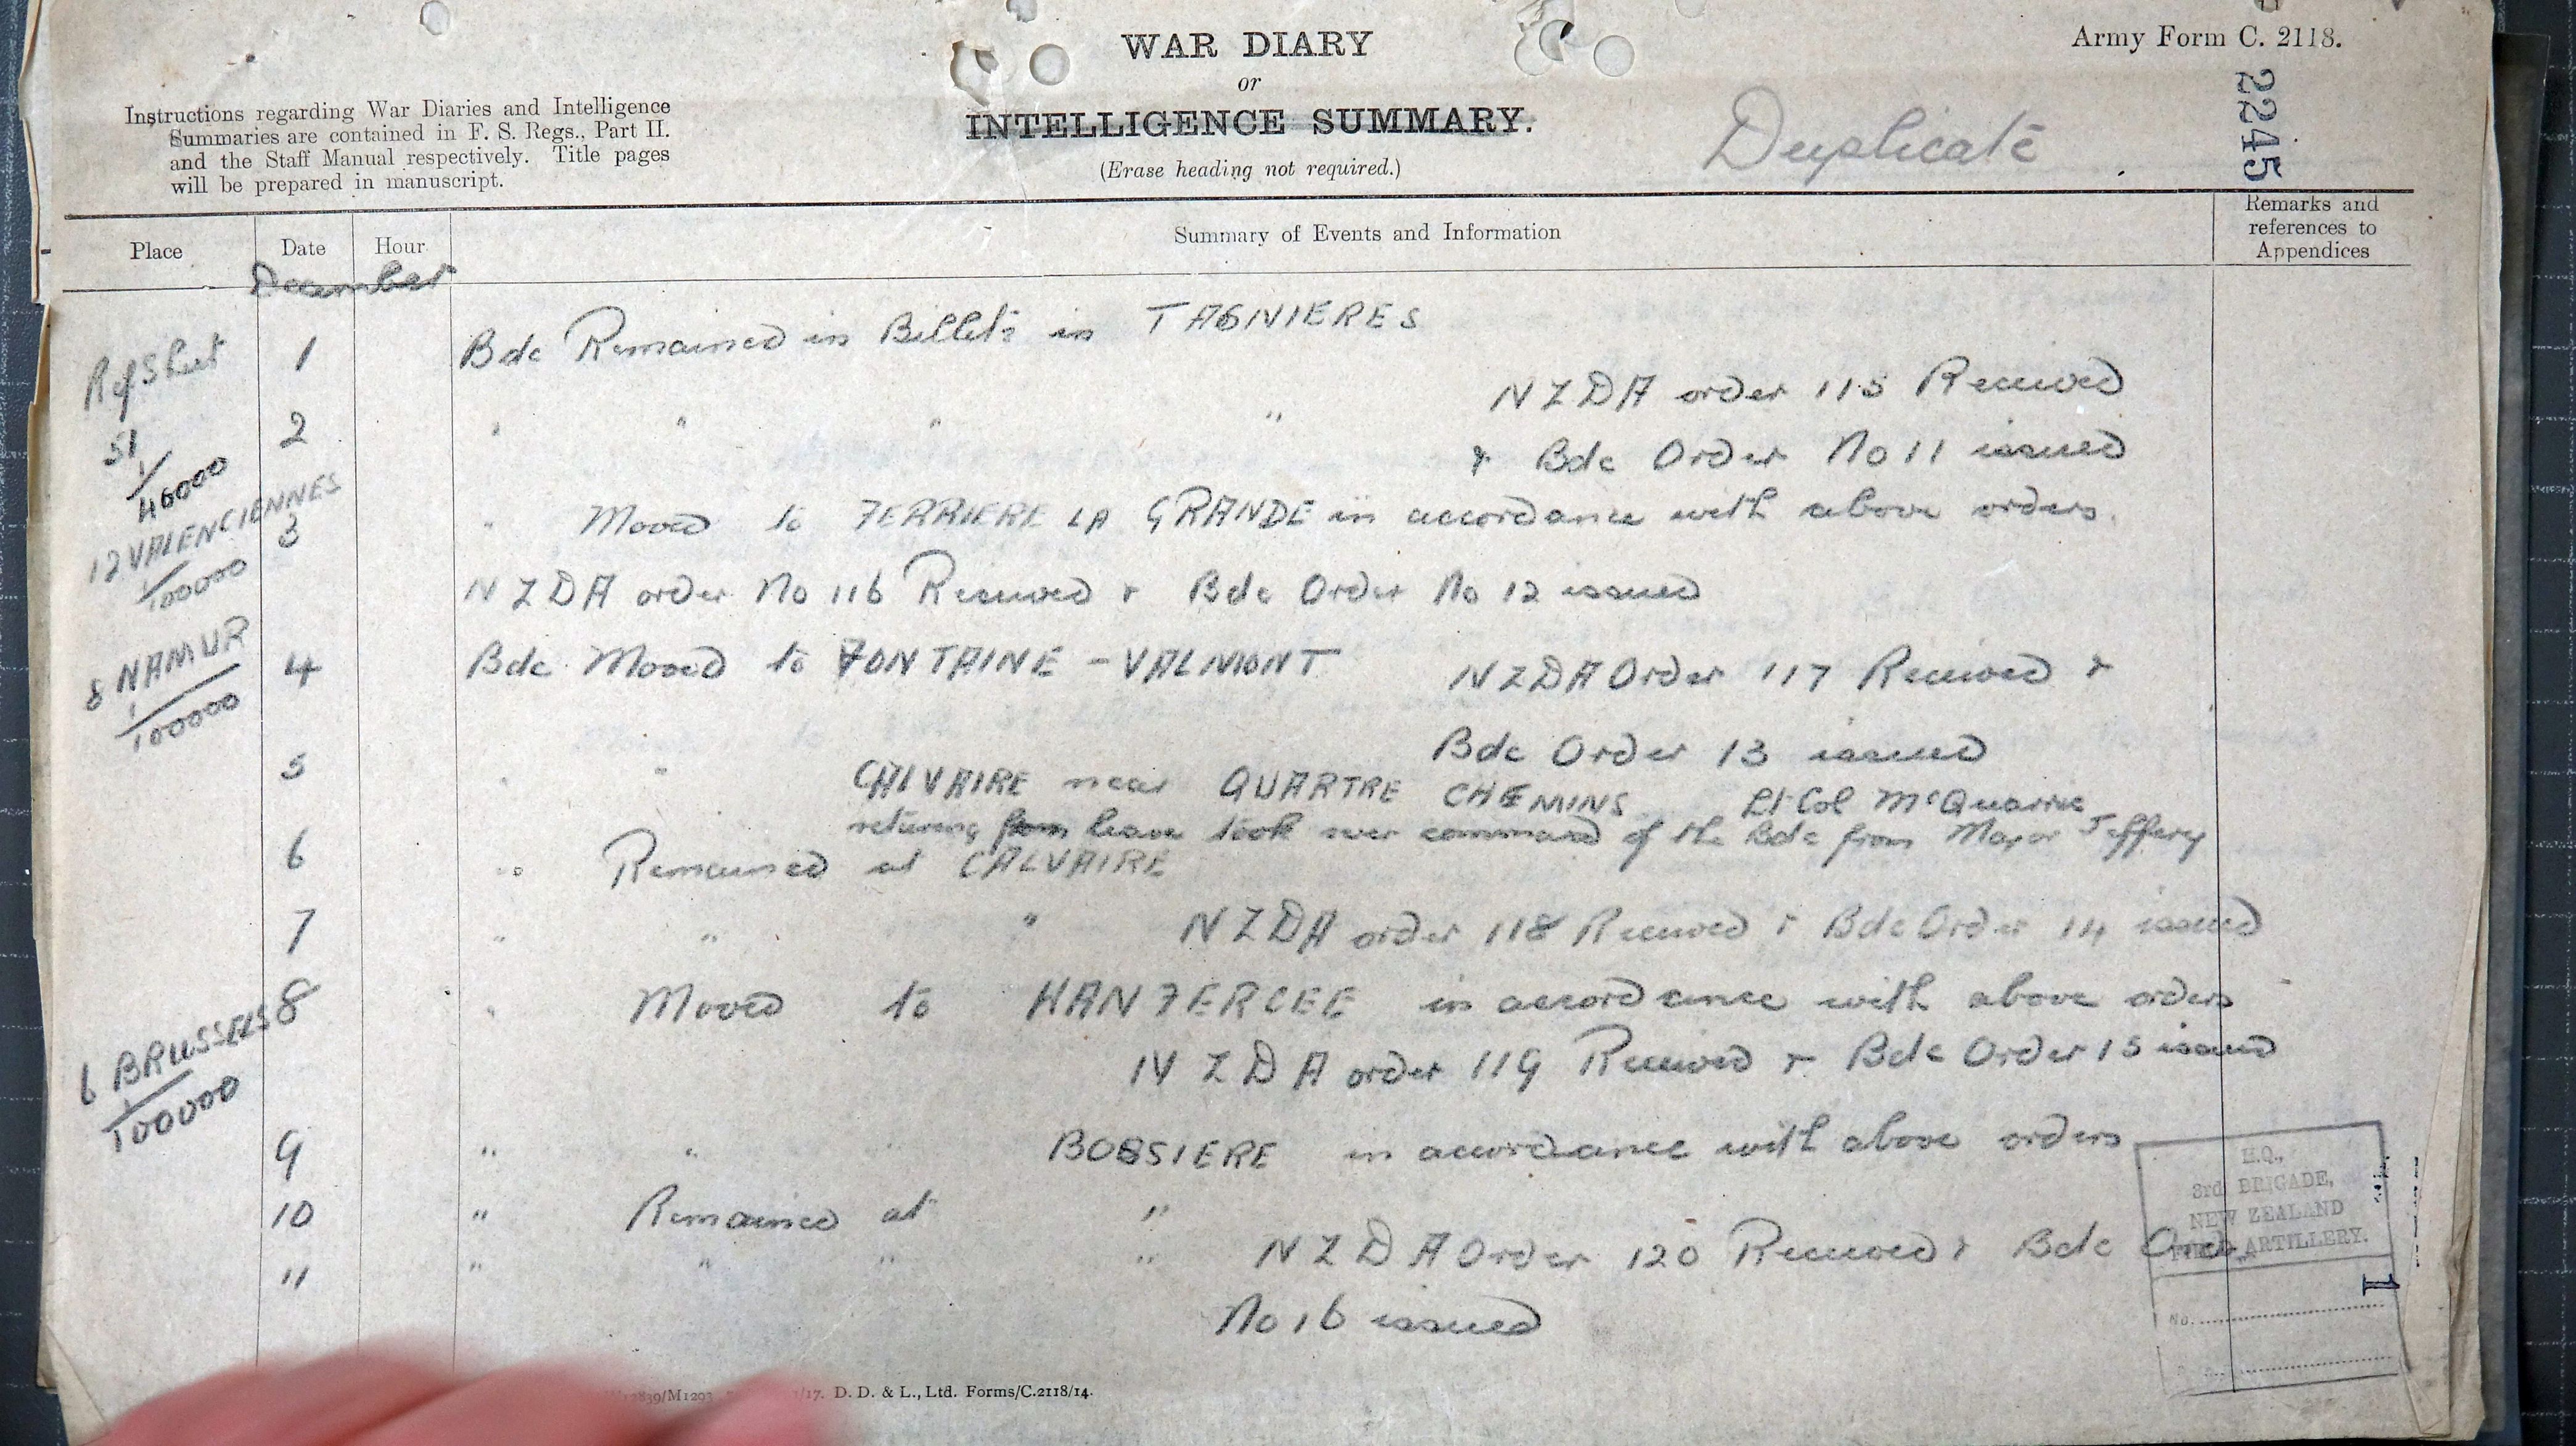 WAR DIARY
or
INTELLIGENCE SUMMARY.
(Erase heading not required.)
Army Form C. 2118.
Instructions regarding War Diaries and Intelligence
Summaries are contained in F. S. Regs., Part II.
and the Staff Manual respectively. Title pages
will be prepared in manuscript.
Duplicate
2245
Place Date Hour Summary of Events and Information Remarks and references to Appendices
December
Ref Sheet
51
1/40000
12 VALENCIENNES
1/100000
8 NAMUR
1/100000
6 BRUSSELS
1/100000
1 Bde Remained in Billets in TAGNIERES
NZDA order 115 Received
2 " " " "
& Bde Order No 11 issued
3 " Moved to FERRIERE LA GRANDE in accordance with above orders.
NZDA order No 116 Received & Bde Order No 12 issued
4 Bde Moved to FONTAINE - VALMONT NZDA Order 117 Received &
Bde Order 13 issued
5 " " CALVAIRE near QUARTRE CHEMINS Lt Col McQuarrie
returning from leave took over command of the Bde from Major Jeffery
6 " Remained at CALVAIRE
7 " " " NZDA order 118 Received & Bde Order 14 issued
8 " Moved to HANZERCEE in accordance with above orders
NZDA order 119 Received & Bde Order 15 issued
9 " " BOSSIERE in accordance with above orders
10 " Remained at "
11 " " " " NZDA Order 120 Received & Bde Order
No 16 issued
H.Q.,
3rd BRIGADE,
NEW ZEALAND
FIELD ARTILLERY.
No.
1
D. D. & L., Ltd. Forms/C.2118/14.